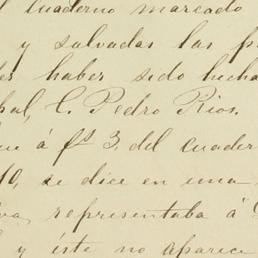 l cuaderno marcado
y salvadas las p
es haber sido hecha
pal, C. Pedro Rios.
ue á fs 3, del cuader
10, se dice en una
va, representaba á
y éste no aparece